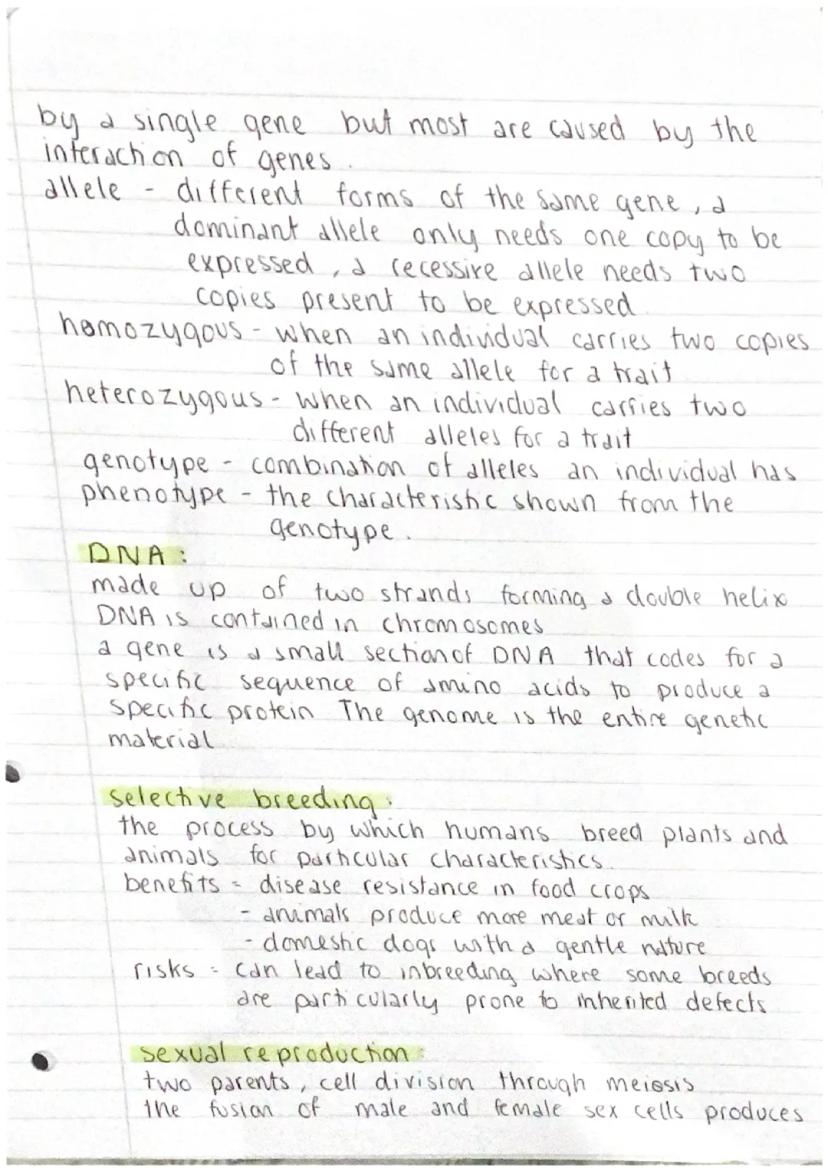 by a single gene but most are caused by the
interaction of genes.
allele - different forms of the same gene, a
dominant allele only needs one copy to be
expressed, a recessive allele needs two
copies present to be expressed
homozygous - when an individual carries two copies
of the same allele for a trait
heterozygous - when an individual carries two
different alleles for a trait
genotype - combination of alleles an individual has
phenotype - the characteristic shown from the
genotype.
DNA:
made up of two strands forming a double helix
DNA is contained in chromosomes
a gene is a small section of DNA that codes for a
specific sequence of amino acids to produce a
specific protein The genome is the entire genetic
material
selective breeding:
the process by which humans breed plants and
animals for particular characteristics.
benefits = disease resistance in food crops
- animals produce more meat or milk
- domestic dogs with a gentle nature
risks = can lead to inbreeding where some breeds
are particularly prone to inherited defects
sexual reproduction:
two parents, cell division through meiosis
the fusion of male and female sex cells produces